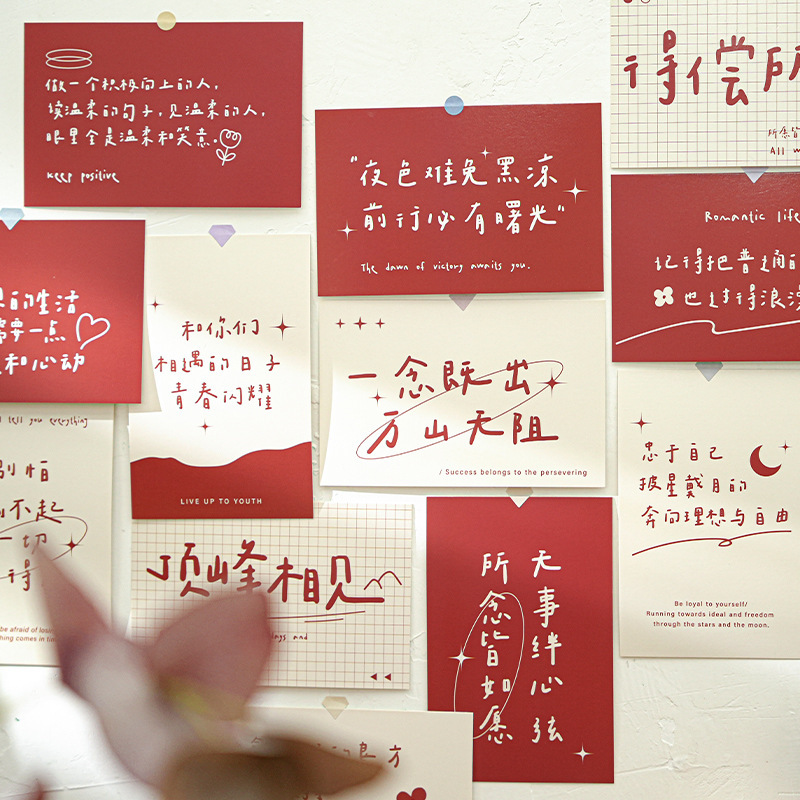 做一个积极向上的人，
读温柔的句子，见温柔的人，
眼里全是温柔和笑意。
keep positive
"夜色难免黑凉
前行必有曙光"
The dawn of victory awaits you.
得偿所
所念皆
All w
Romantic life
记得把普通的
也过得浪漫
的生活
需要一点
和心动
和你们
相遇的日子
青春闪耀
LIVE UP TO YOUTH
一念既出
万山无阻
/ Success belongs to the persevering
忠于自己
披星戴月的
奔向理想与自由
Be loyal to yourself/
Running towards ideal and freedom
through the stars and the moon.
tell you everything
别怕
不起
一切
得
be afraid of losing
thing comes in tim
顶峰相见
and
无事绊心弦
所念皆如愿